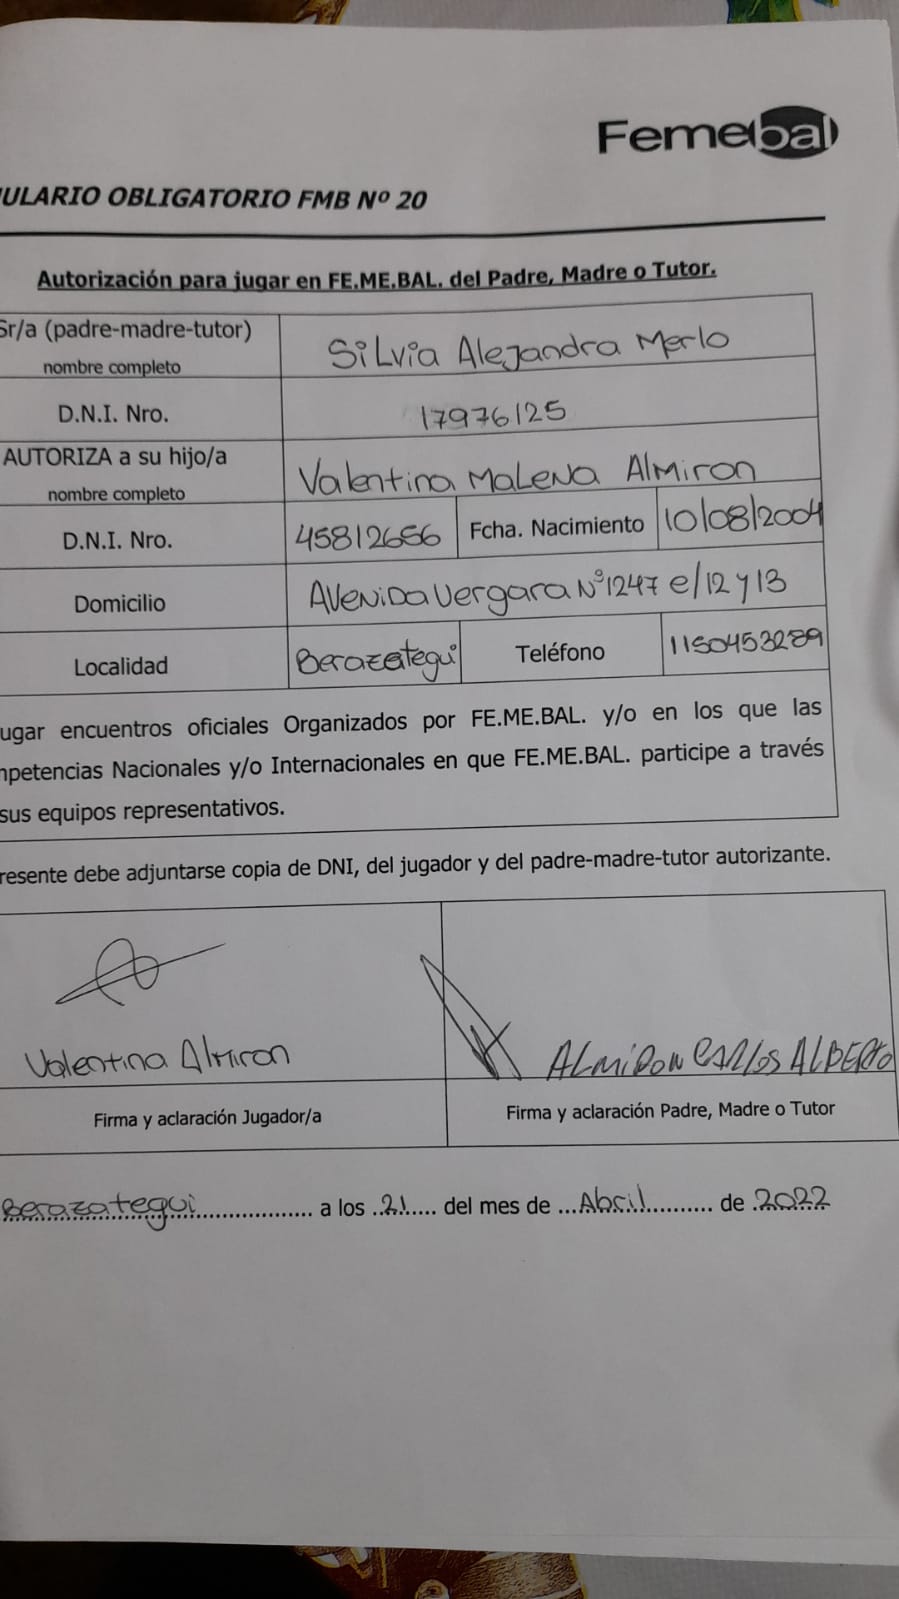 Femebal
ULARIO OBLIGATORIO FMB Nº 20
Autorización para jugar en FE.ME.BAL. del Padre, Madre o Tutor.
Sr/a (padre-madre-tutor)
nombre completo
Silvia Alejandra Merlo
D.N.I. Nro.
17976125
AUTORIZA a su hijo/a
nombre completo
Valentina Malena Almiron
D.N.I. Nro.
45812656
Fcha. Nacimiento
10/08/2004
Domicilio
Avenida Vergara Nº1247 e/12 y 13
Localidad
Berazategui
Teléfono
1150453289
ugar encuentros oficiales Organizados por FE.ME.BAL. y/o en los que las
mpetencias Nacionales y/o Internacionales en que FE.ME.BAL. participe a través
sus equipos representativos.
resente debe adjuntarse copia de DNI, del jugador y del padre-madre-tutor autorizante.
Valentina Almiron
ALMIRON CARLOS ALBERTO
Firma y aclaración Jugador/a
Firma y aclaración Padre, Madre o Tutor
Berazategui.................... a los ..21..... del mes de ...Abril........... de .2022